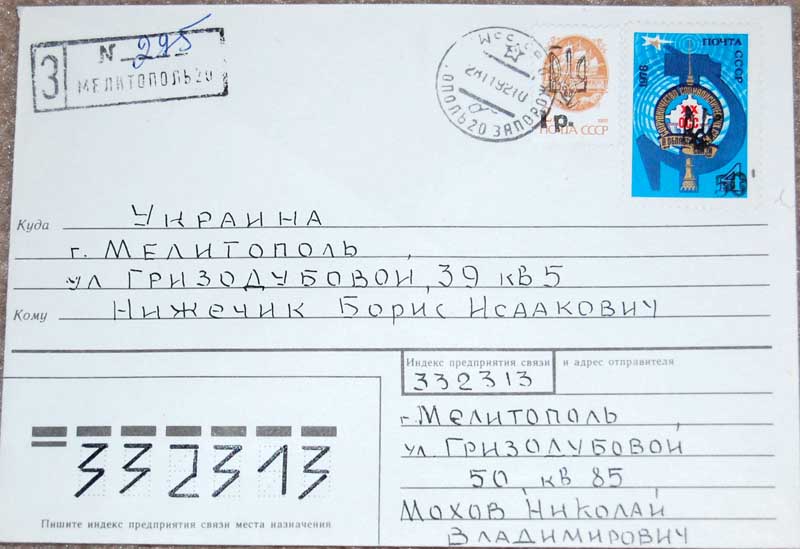 З
N 295
МЕЛИТОПОЛЬ 20
СССР
ОПОЛЬ 20 ЗАПОРОЖ
1р.
ПОЧТА СССР
ПОЧТА СССР
1978
XIX
ОСС
Куда УКРАИНА
г. МЕЛИТОПОЛЬ,
ул ГРИЗОДУБОВОЙ, 39 кв 5
Кому НИЖЕЧИК БОРИС ИСААКОВИЧ
Индекс предприятия связи и адрес отправителя
332313
г. МЕЛИТОПОЛЬ,
ул. ГРИЗОДУБОВОЙ
50, кв 85
МОХОВ НИКОЛАЙ
ВЛАДИМИРОВИЧ
332313
Пишите индекс предприятия связи места назначения